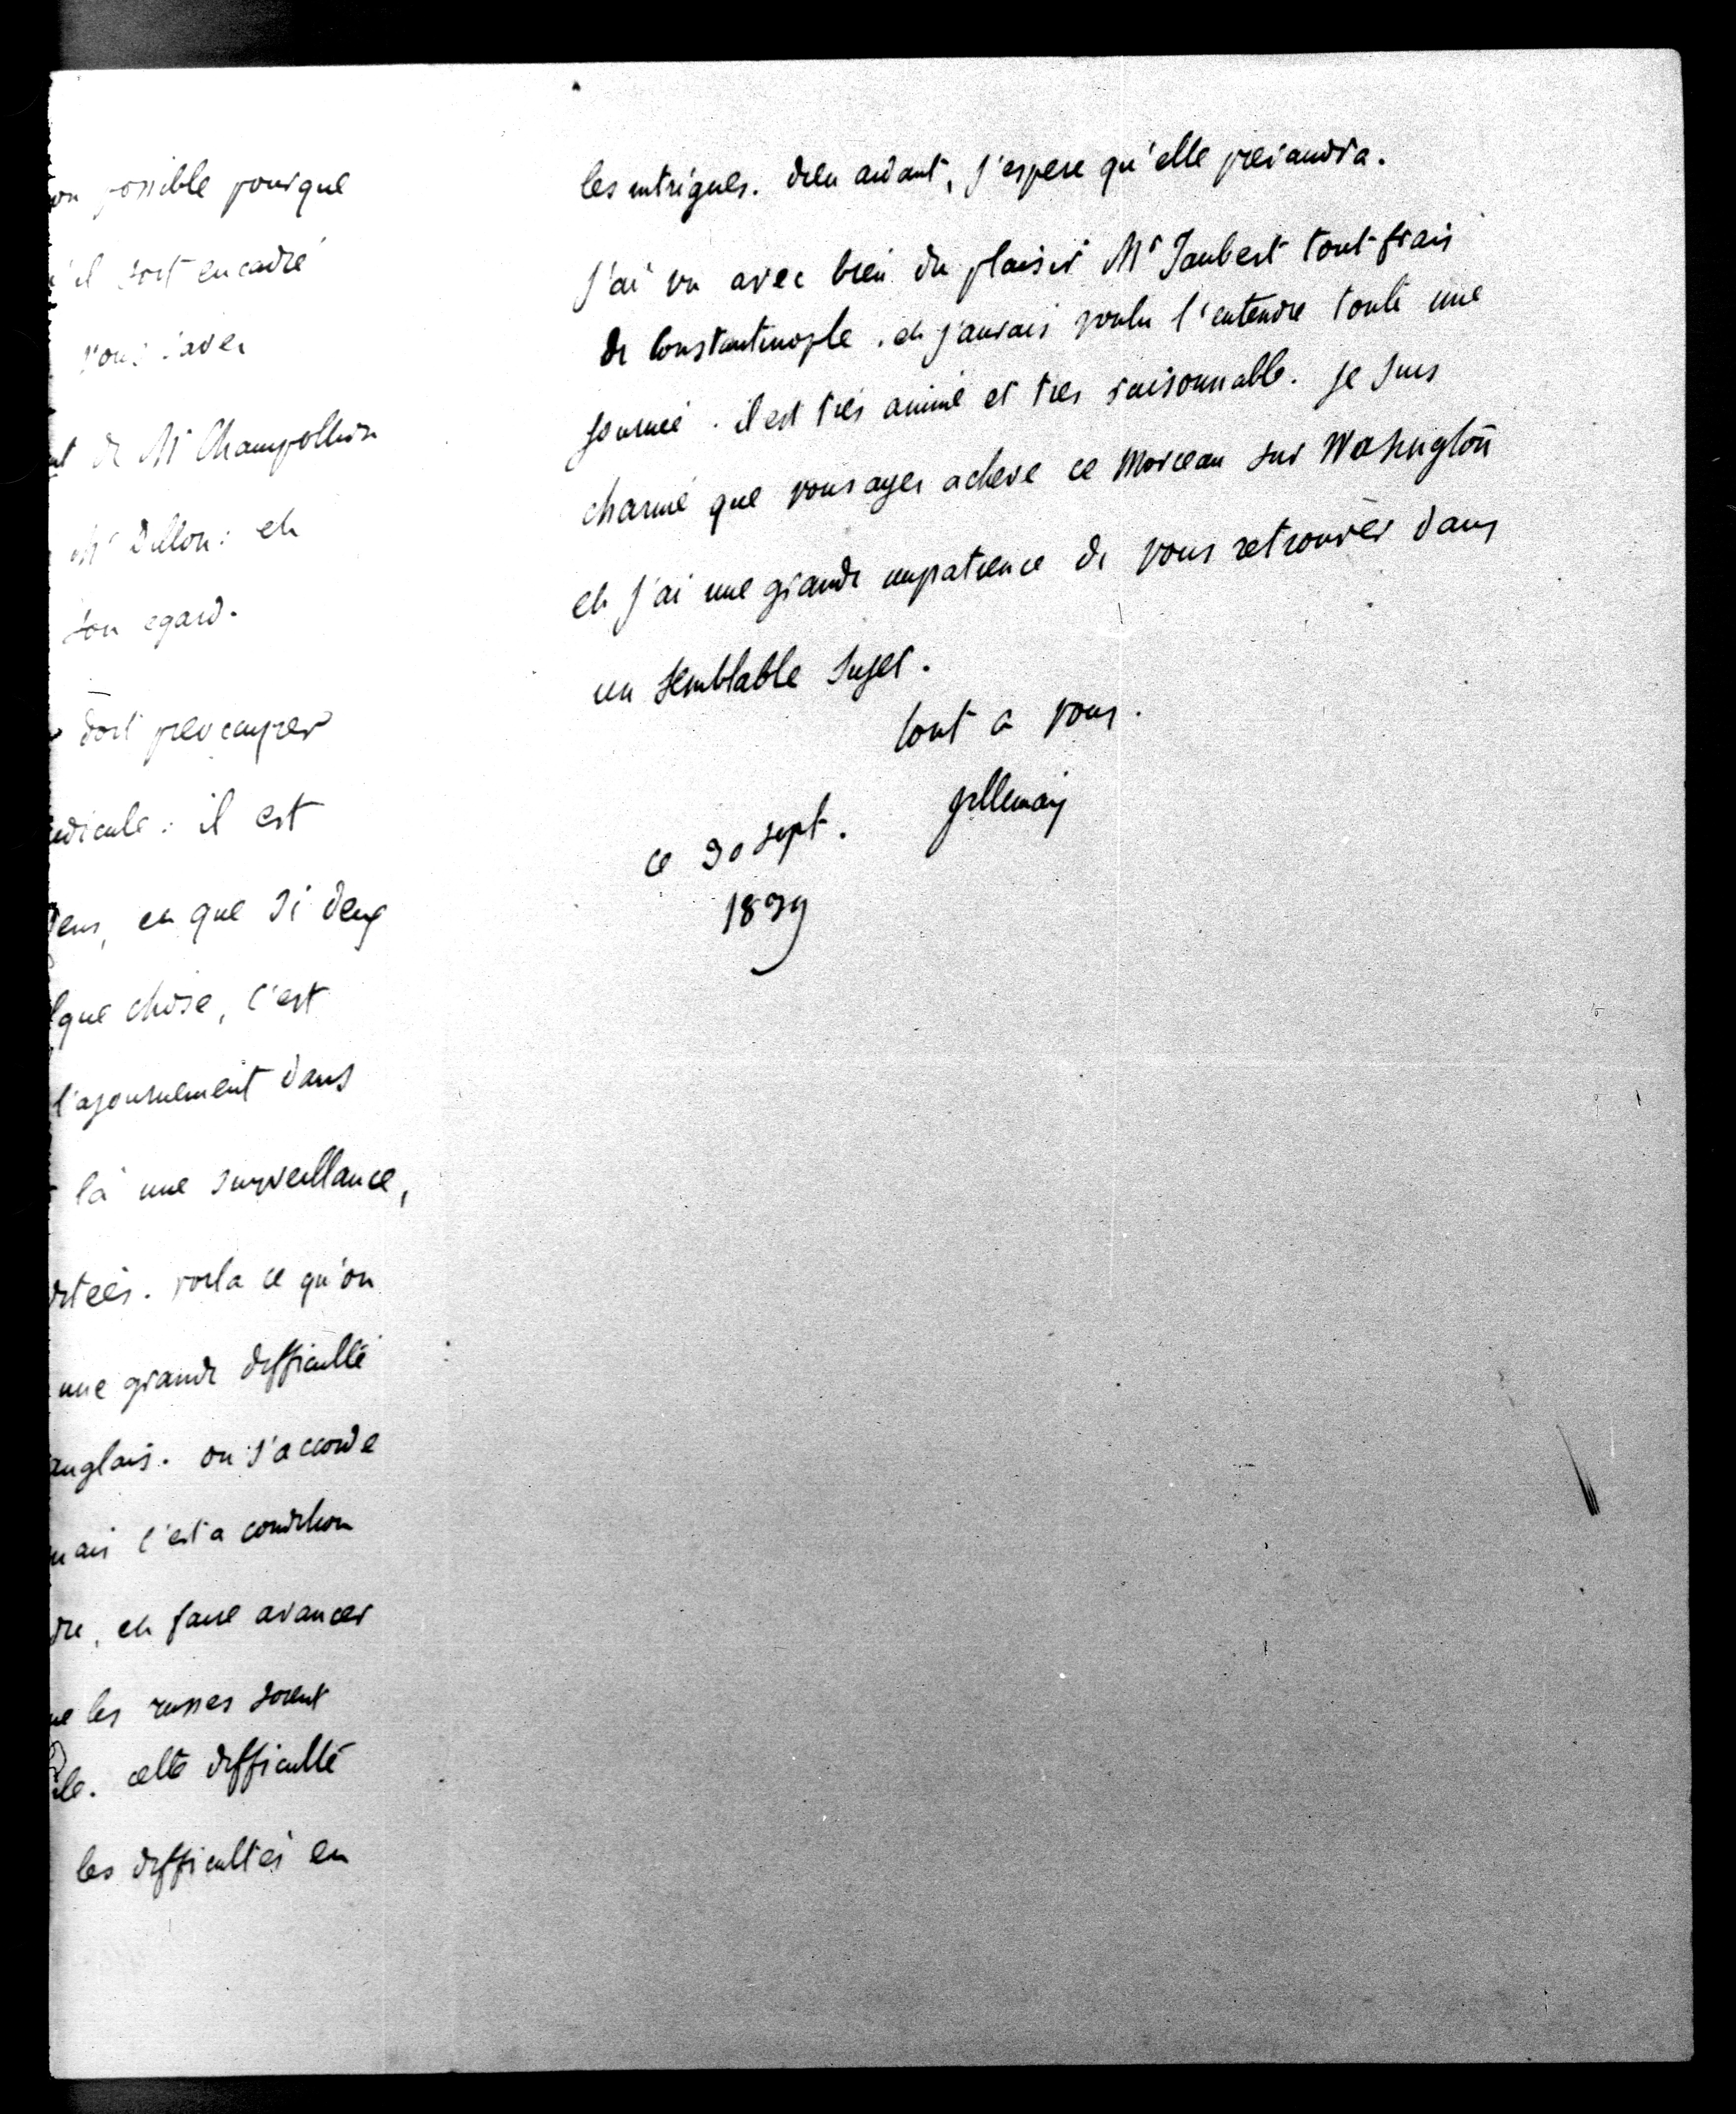 possible pourque
il soit encadré
vous savez
de Mr Champollion
Mr Dillon: et
son egard.
doit preocuper
il est
en que si deux
que chose, c'est
l'ajournement dans
là une surveillance,
voila ce qu'on
une grande difficulté
anglais. on s'accorde
mais c'est a condition
et faire avancer
les russes soient
cette difficulté
les difficultés en
les intrigues. dieu aidant, j'espere qu'elle
J'ai vu avec bien du plaisir Mr Jaubert tout frais
de Constantinople. et j'aurais voulu l'entendre toute une
journée. il est très animé et tres raisonnable. je suis
charmé que vous ayez acheve ce Morceau sur Washington
et j'ai une grande impatience de vous retrouver dans
un semblable sujet.
tout a vous.
Villemain
ce 30 sept.
1839